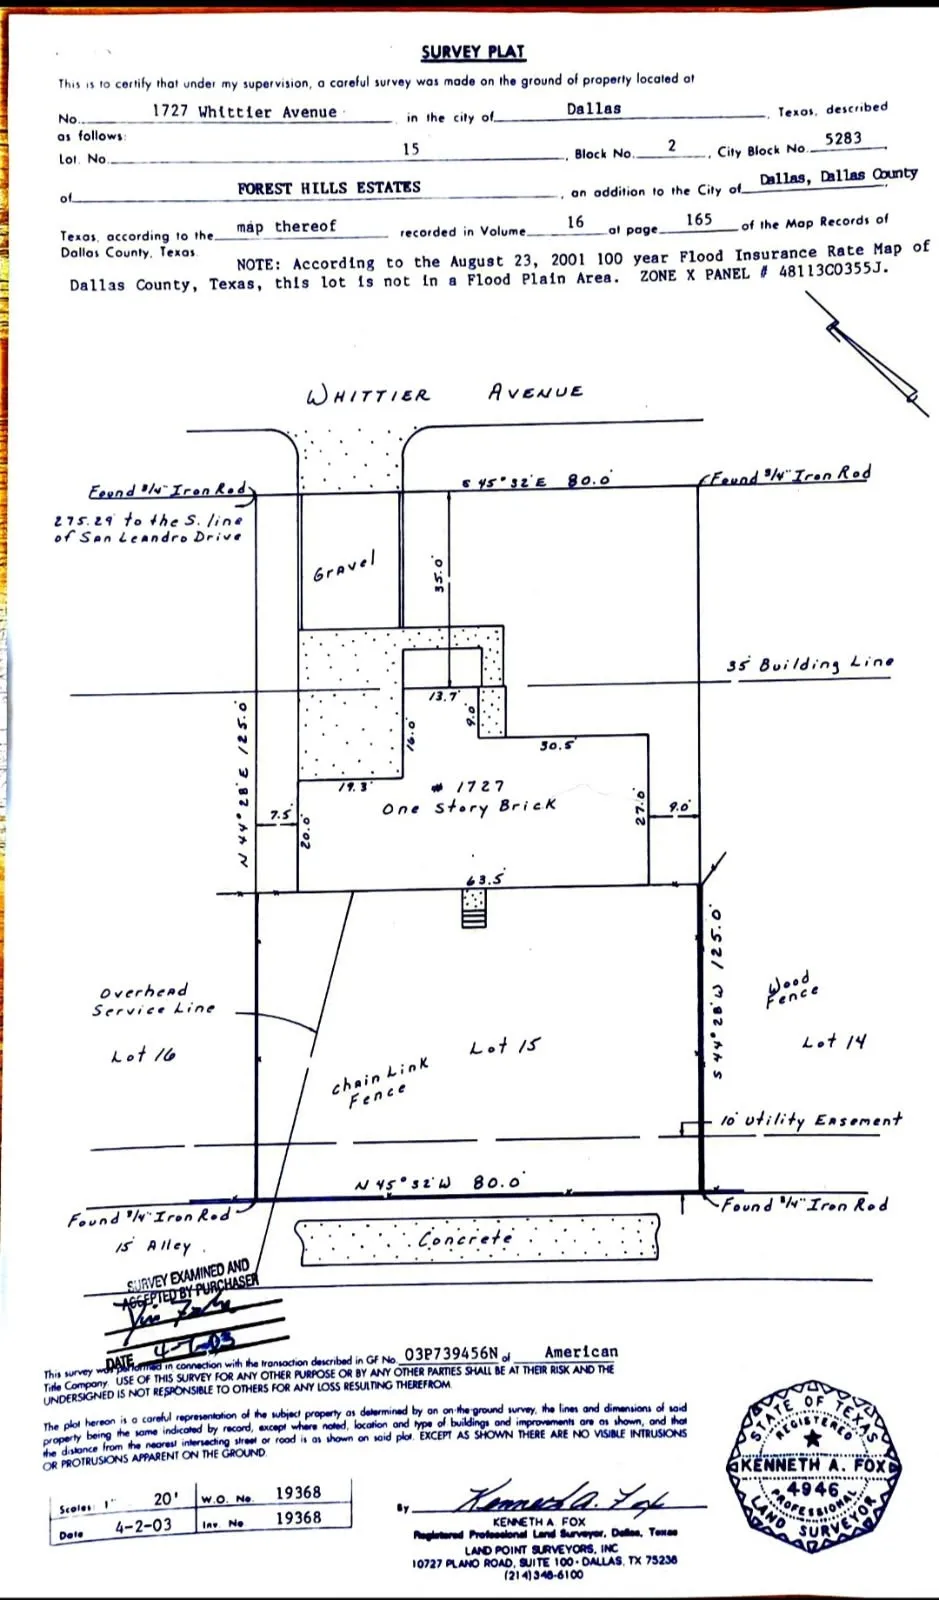 SURVEY PLAT
This is to certify that under my supervision, a careful survey was made on the ground of property located at
No. 1727 Whittier Avenue in the city of Dallas, Texas, described
as follows:
Lot. No. 15, Block No. 2, City Block No. 5283
of FOREST HILLS ESTATES, an addition to the City of Dallas, Dallas County
Texas, according to the map thereof recorded in Volume 16 at page 165 of the Map Records of
Dallas County, Texas.
NOTE: According to the August 23, 2001 100 year Flood Insurance Rate Map of
Dallas County, Texas, this lot is not in a Flood Plain Area. ZONE X PANEL # 48113C0355J.
WHITTIER AVENUE
Found 3/4" Iron Rod
S 45° 32' E 80.0'
Found 3/4" Iron Rod
275.29' to the S. line
of San Leandro Drive
Gravel
35.0'
35' Building Line
13.7'
9.0'
16.0'
30.5'
N 44° 28' E 125.0'
19.3'
# 1727
One Story Brick
7.5'
20.0'
27.0'
9.0'
63.5'
S 44° 28' W 125.0'
Overhead
Service Line
Wood
Fence
Lot 16
Lot 15
Lot 14
Chain Link
Fence
10' Utility Easement
N 45° 32' W 80.0'
Found 3/4" Iron Rod
Found 3/4" Iron Rod
15' Alley
Concrete
SURVEY EXAMINED AND
ACCEPTED BY PURCHASER
DATE 4-7-03
This survey was performed in connection with the transaction described in GF No. 03P739456N of American
Title Company. USE OF THIS SURVEY FOR ANY OTHER PURPOSE OR BY ANY OTHER PARTIES SHALL BE AT THEIR RISK AND THE
UNDERSIGNED IS NOT RESPONSIBLE TO OTHERS FOR ANY LOSS RESULTING THEREFROM.
The plot hereon is a careful representation of the subject property as determined by an on-the-ground survey, the lines and dimensions of said
property being the same indicated by record, except where noted, location and type of buildings and improvements are as shown, and that
the distance from the nearest intersecting street or road is as shown on said plot. EXCEPT AS SHOWN THERE ARE NO VISIBLE INTRUSIONS
OR PROTRUSIONS APPARENT ON THE GROUND.
Scales: 1" 20' W.O. No. 19368
Date 4-2-03 Inv. No 19368
By Kenneth A. Fox
KENNETH A. FOX
Registered Professional Land Surveyor, Dallas, Texas
LAND POINT SURVEYORS, INC
10727 PLANO ROAD, SUITE 100 · DALLAS, TX 75238
(214) 348-6100
STATE OF TEXAS
REGISTERED
KENNETH A. FOX
4946
PROFESSIONAL
LAND SURVEYOR